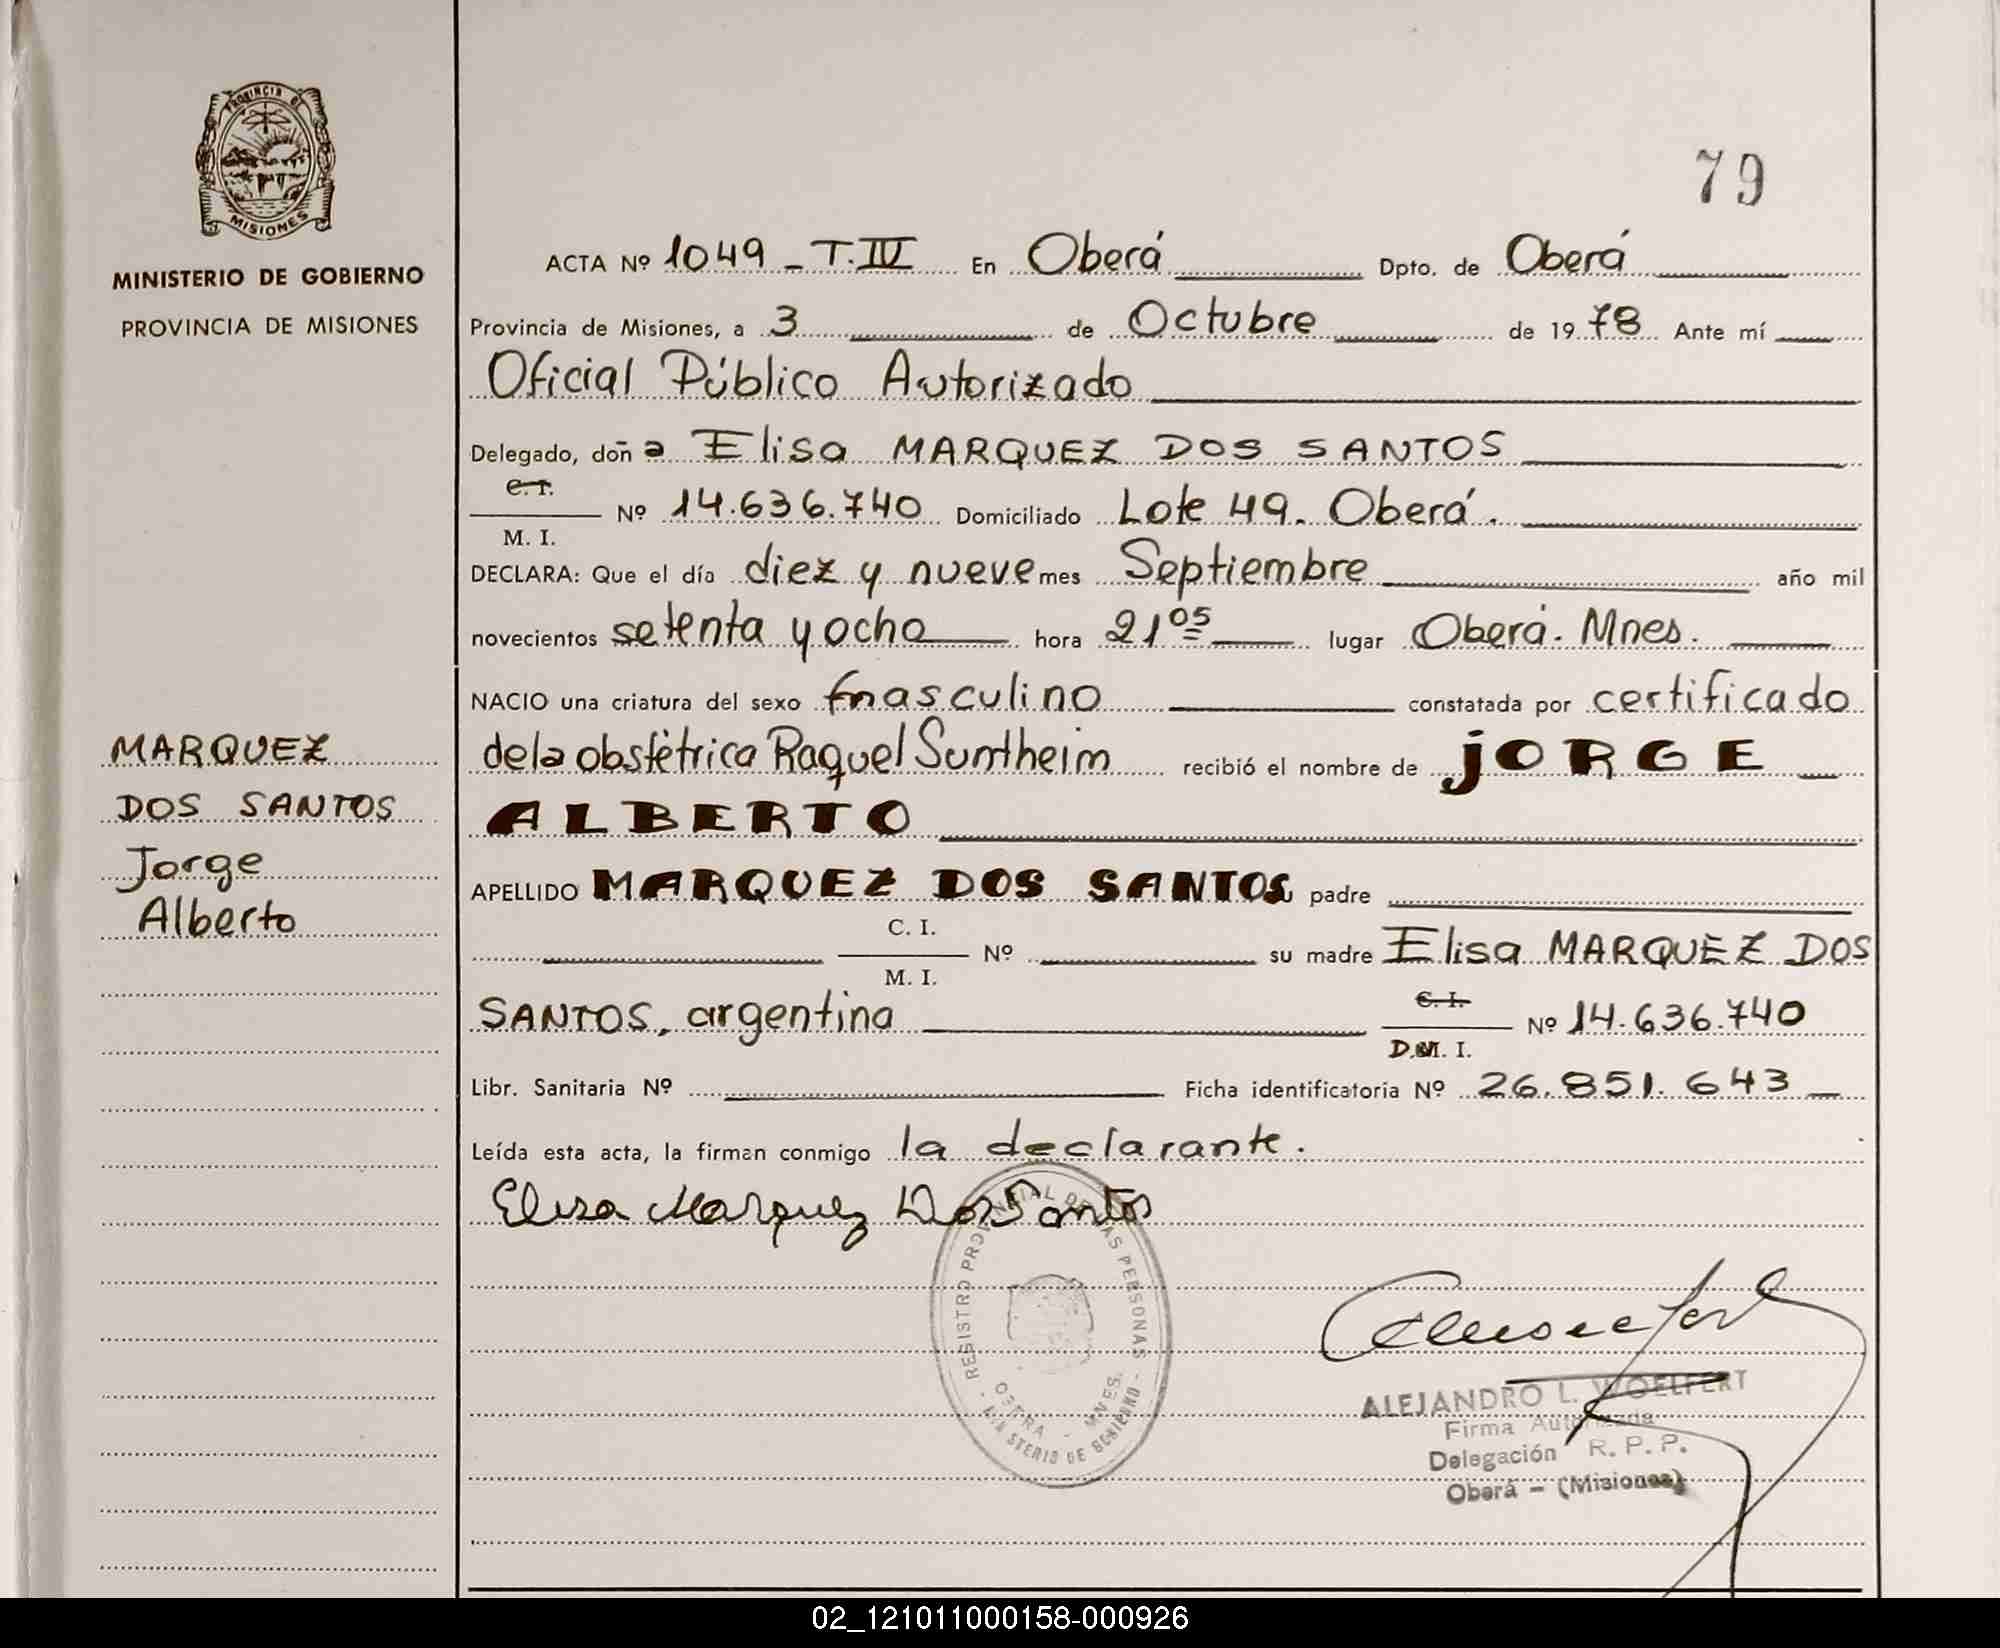 PROVINCIA DE
MISIONES
MINISTERIO DE GOBIERNO
PROVINCIA DE MISIONES
79
ACTA Nº 1049 - T.IV En Oberá Dpto. de Oberá
Provincia de Misiones, a 3 de Octubre de 1978 Ante mí
Oficial Público Autorizado
Delegado, doña Elisa MARQUEZ DOS SANTOS
C. I.
Nº 14.636.740 Domiciliado Lote 49. Oberá.
M. I.
DECLARA: Que el día diez y nueve mes Septiembre año mil
novecientos setenta y ocho hora 21 05 lugar Oberá. Mnes.
NACIO una criatura del sexo masculino constatada por certificado
de la obstétrica Raquel Sumtheim recibió el nombre de JORGE
ALBERTO
APELLIDO MARQUEZ DOS SANTOS padre
C. I.
Nº su madre Elisa MARQUEZ DOS
M. I.
SANTOS, argentina C. I. Nº 14.636.740
D.M. I.
Libr. Sanitaria Nº Ficha identificatoria Nº 26.851.643
Leída esta acta, la firman conmigo la declarante.
Elisa Marquez Dos Santos
MARQUEZ
DOS SANTOS
Jorge
Alberto
REGISTRO PROVINCIAL DE LAS PERSONAS
OBERA - MNES.
MINISTERIO DE GOBIERNO
ALEJANDRO L. WOELFERT
Firma Autorizada
Delegación R. P. P.
Oberá - (Misiones)
02_121011000158-000926